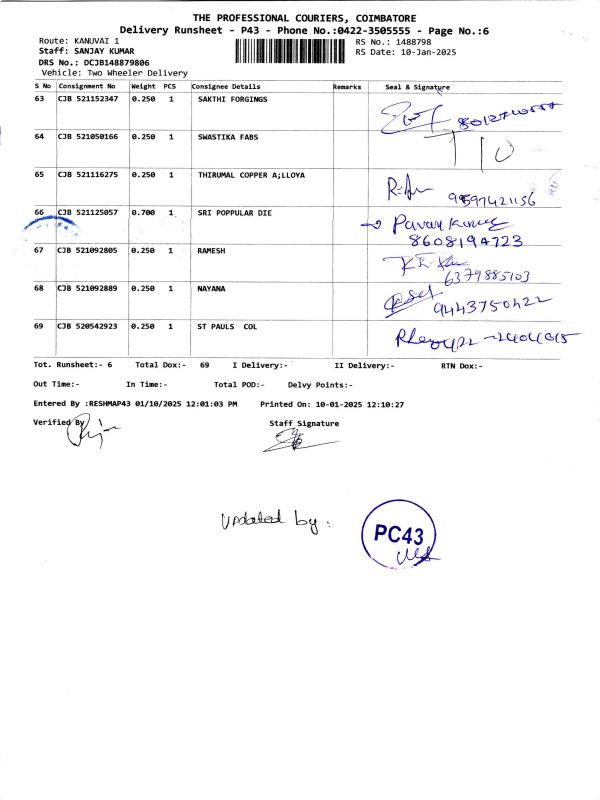 THE PROFESSIONAL COURIERS, COIMBATORE
Delivery Runsheet - P43 - Phone No.:0422-3505555 - Page No.:6
Route: KANUVAI 1 RS No.: 1488798
Staff: SANJAY KUMAR RS Date: 10-Jan-2025
DRS No.: DCJB148879806
Vehicle: Two Wheeler Delivery
S No Consignment No Weight PCS Consignee Details Remarks Seal & Signature
63 CJB 521152347 0.250 1 SAKTHI FORGINGS
64 CJB 521050166 0.250 1 SWASTIKA FABS
65 CJB 521116275 0.250 1 THIRUMAL COPPER A;LLOYA 9597421156
66 CJB 521125057 0.700 1 SRI POPPULAR DIE Pavan Kumar
8608194723
67 CJB 521092805 0.250 1 RAMESH
6379885103
68 CJB 521092889 0.250 1 NAYANA 9443750422
69 CJB 520542923 0.250 1 ST PAULS COL
Tot. Runsheet:- 6 Total Dox:- 69 I Delivery:- II Delivery:- RTN Dox:-
Out Time:- In Time:- Total POD:- Delvy Points:-
Entered By :RESHMAP43 01/10/2025 12:01:03 PM Printed On: 10-01-2025 12:10:27
Verified By Staff Signature
Updated by:
PC43